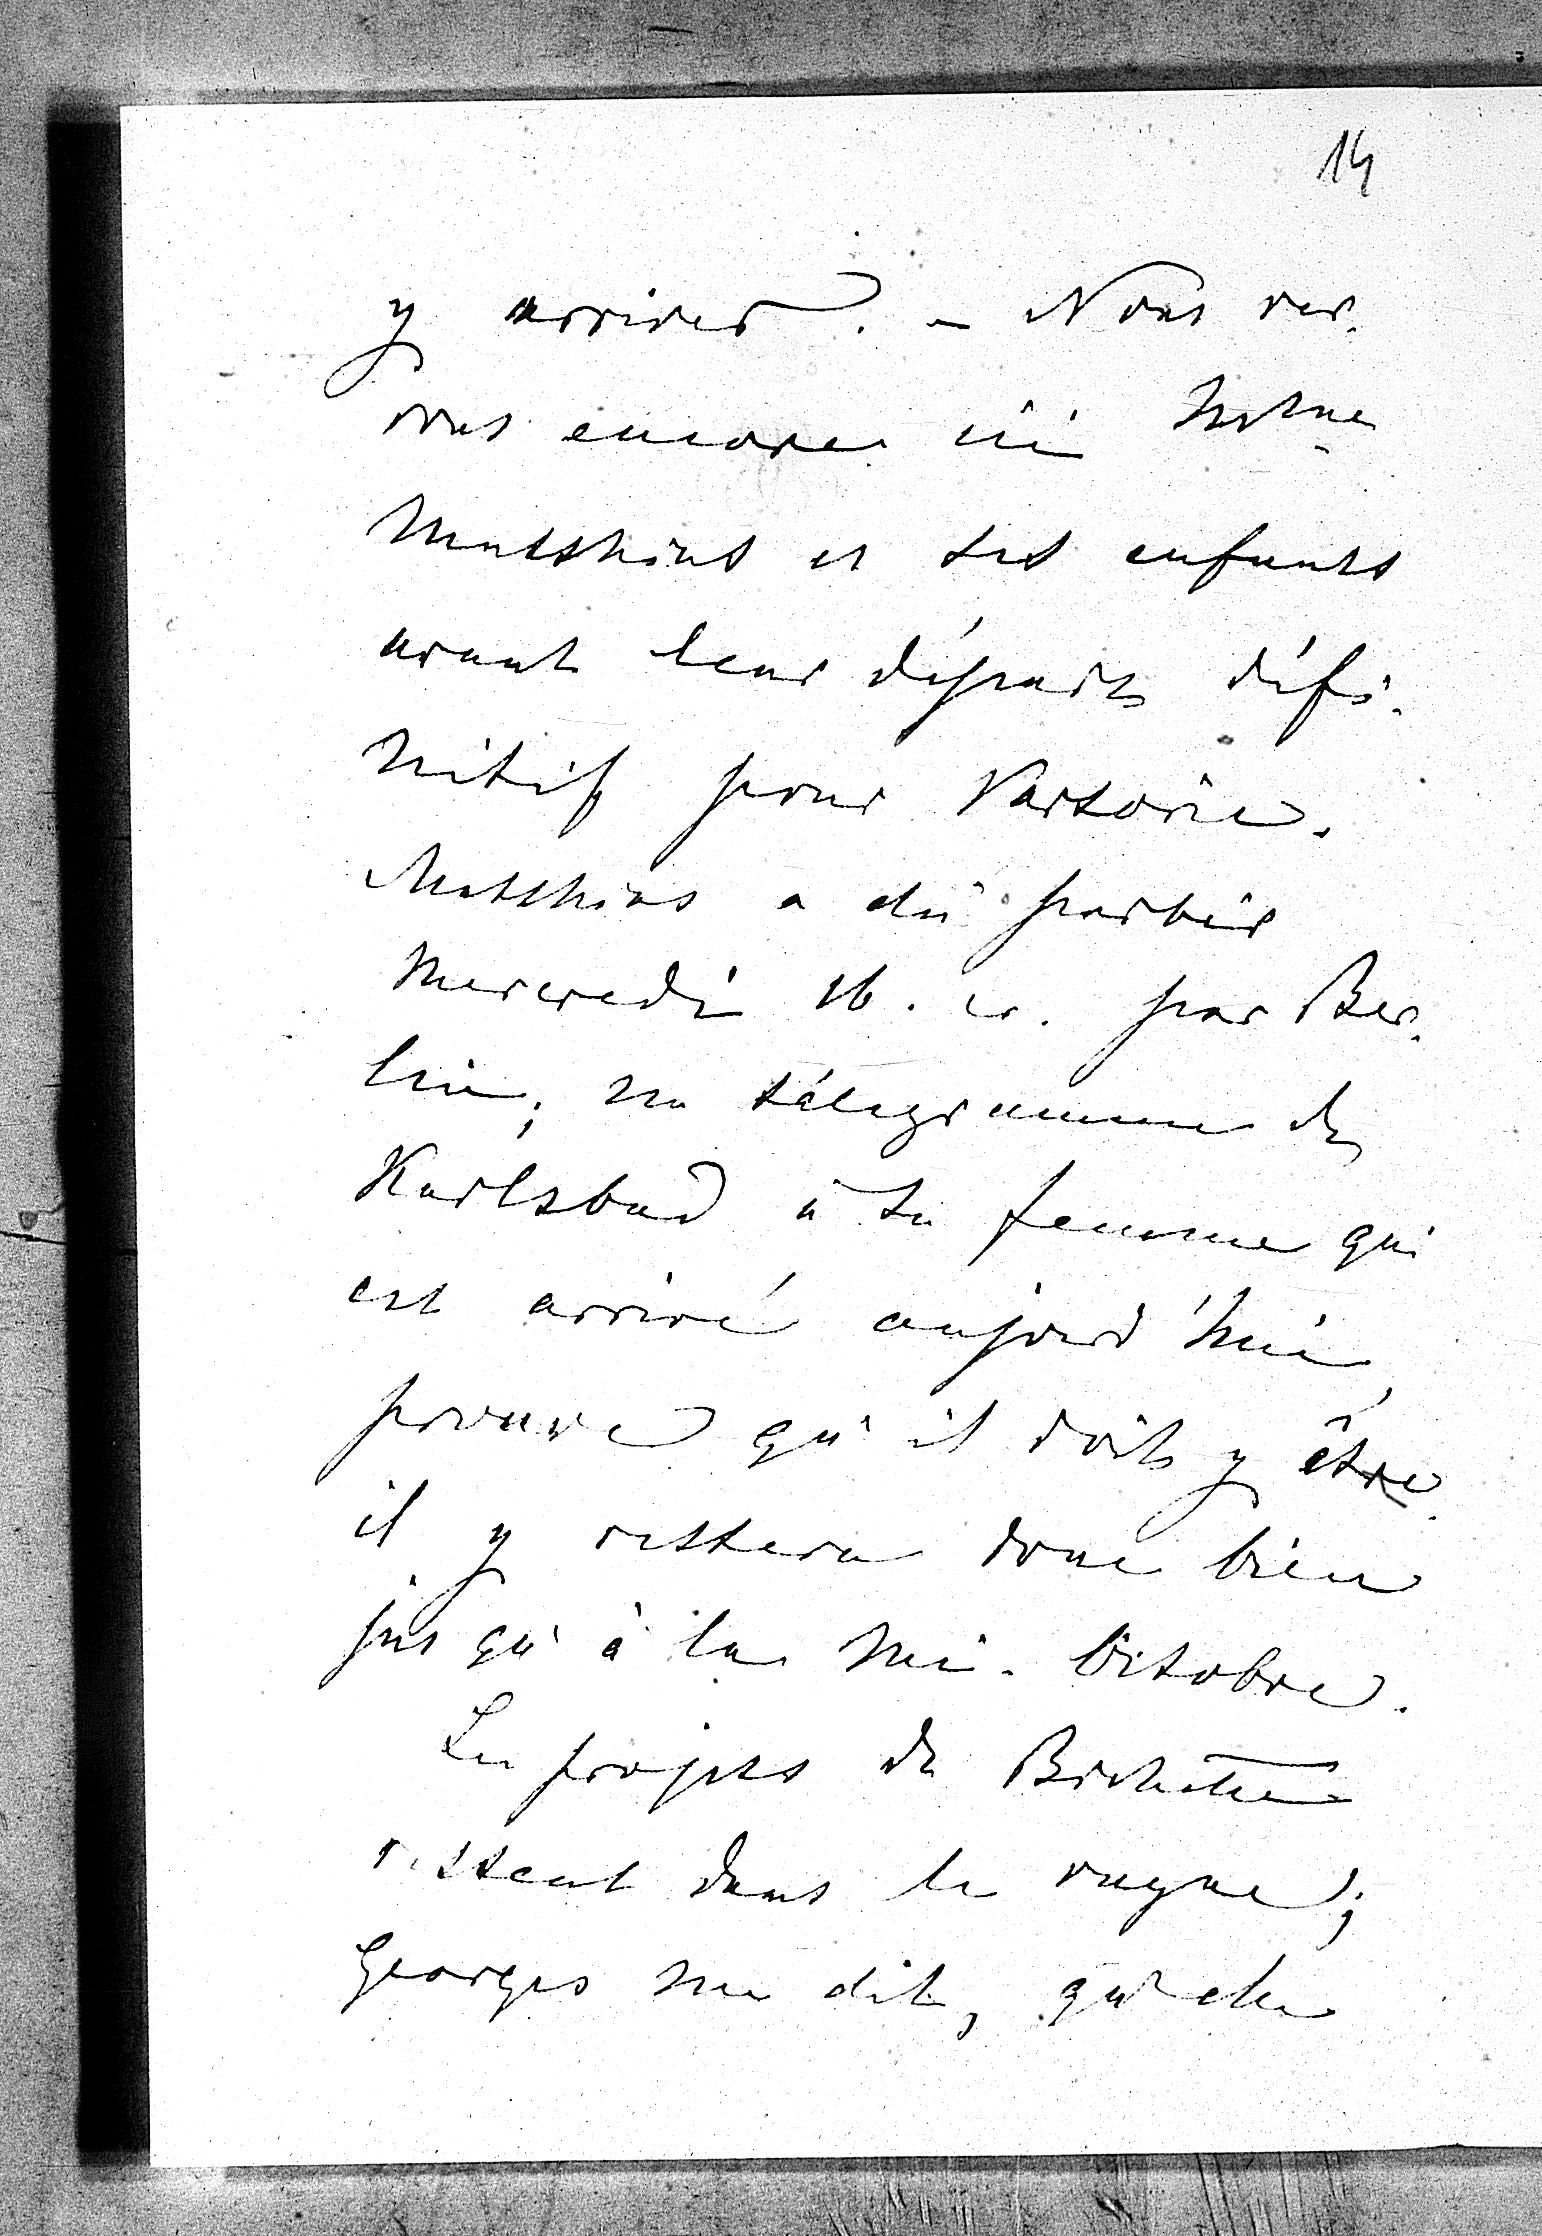 14
y arriver. – Nous ver-
rons encore ici Mme
Matthias et ses enfants
avant leur départ défi-
nitif pour Varsovie.
Matthias a dû partir
Mercredi 16. cr. par Ber-
lin; un télégramme de
Karlsbad à sa femme qui
est arrivé aujourd'hui,
prouve qu'il doit y être
il y restera donc bien
jusqu'à la mi-Octobre.
Les projets de
restent dans le vague;
Georges me dit, qu'elle